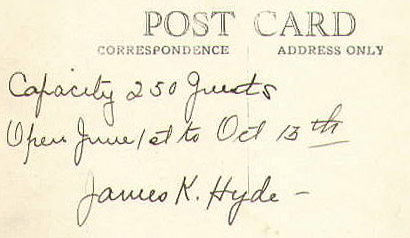 POST CARD
CORRESPONDENCE ADDRESS ONLY
Capacity 250 Guests
Open June 1st to Oct 13th
James K. Hyde -